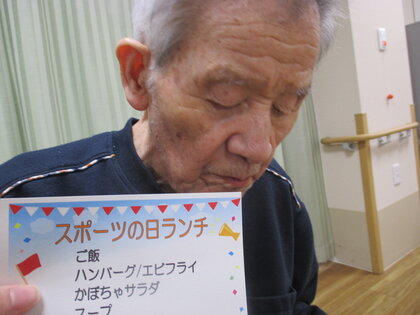 スポーツの日ランチ
ご飯
ハンバーグ/エビフライ
かぼちゃサラダ
スープ